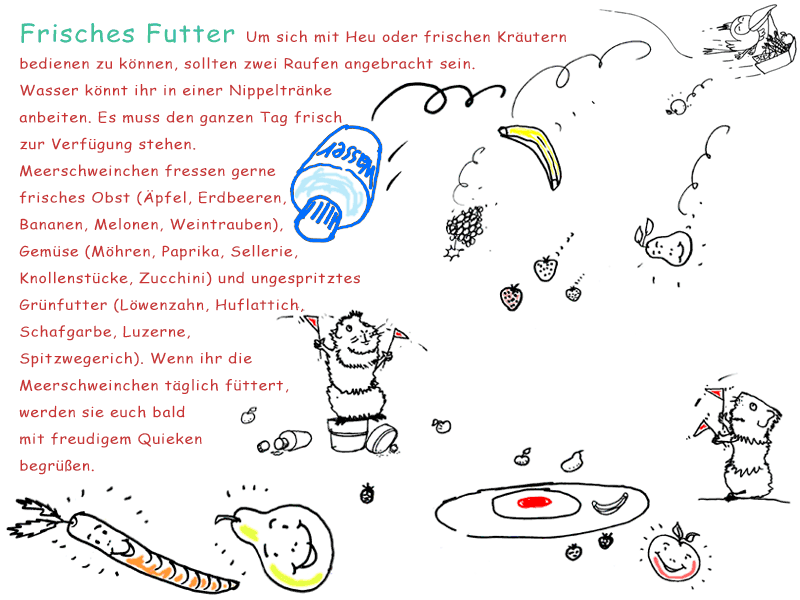 Frisches Futter Um sich mit Heu oder frischen Kräutern
bedienen zu können, sollten zwei Raufen angebracht sein.
Wasser könnt ihr in einer Nippeltränke
anbeiten. Es muss den ganzen Tag frisch
zur Verfügung stehen.
Meerschweinchen fressen gerne
frisches Obst (Äpfel, Erdbeeren,
Bananen, Melonen, Weintrauben),
Gemüse (Möhren, Paprika, Sellerie,
Knollenstücke, Zucchini) und ungespritztes
Grünfutter (Löwenzahn, Huflattich,
Schafgarbe, Luzerne,
Spitzwegerich). Wenn ihr die
Meerschweinchen täglich füttert,
werden sie euch bald
mit freudigem Quieken
begrüßen.
Wasser